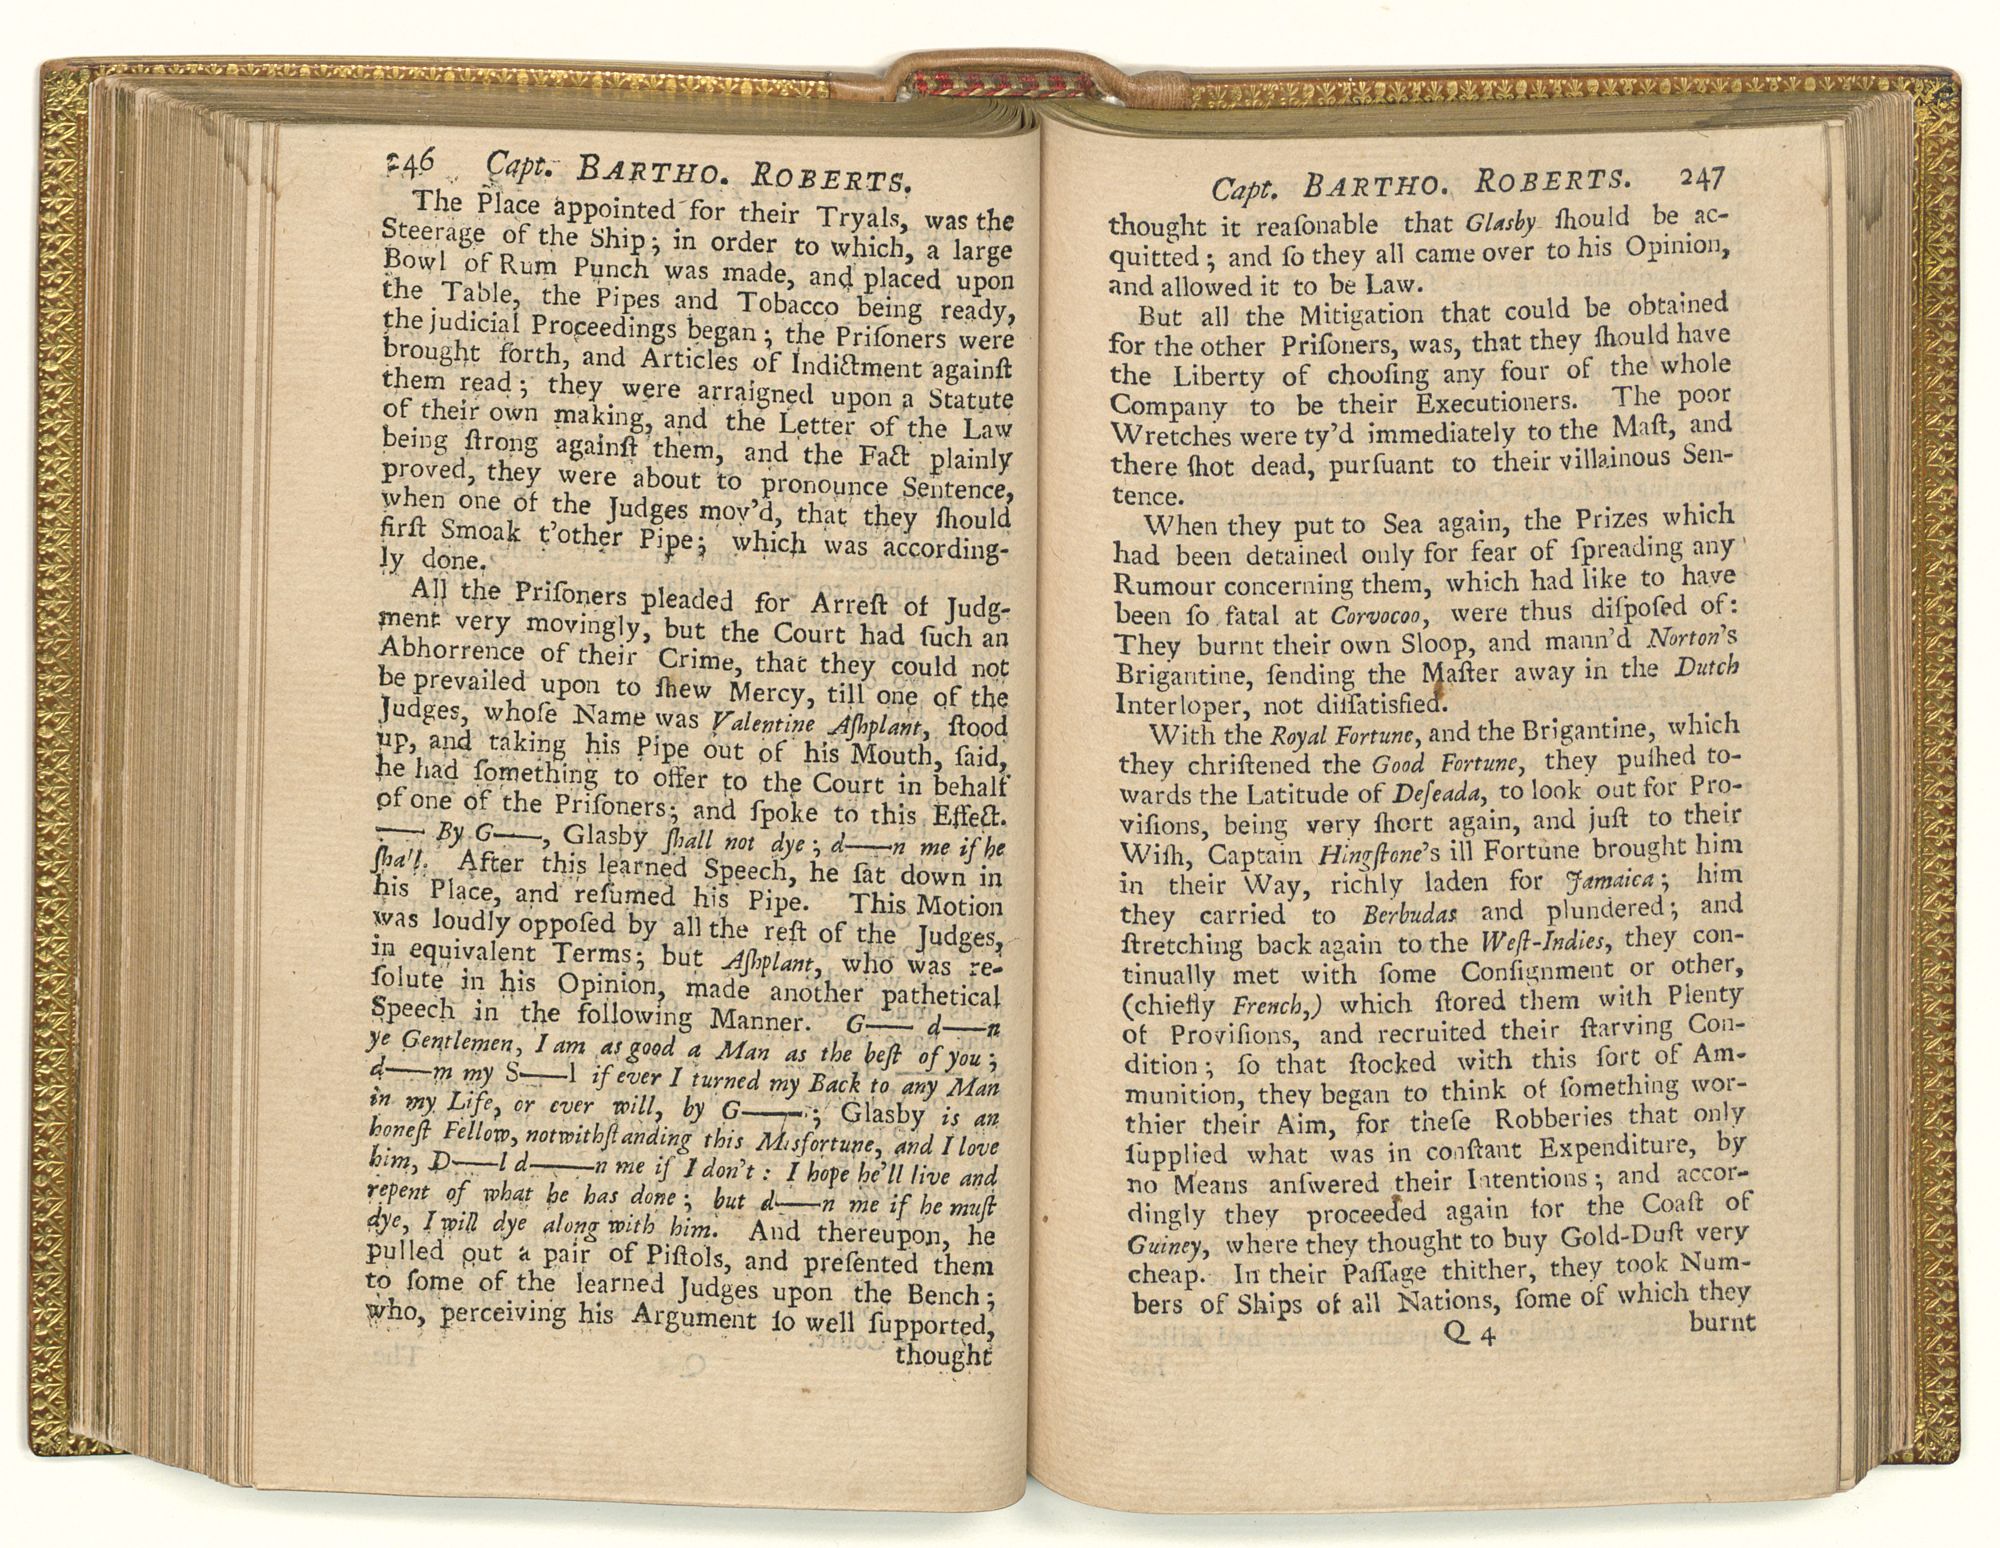 246 Capt. BARTHO. ROBERTS.
The Place appointed for their Tryals, was the
Steerage of the Ship; in order to which, a large
Bowl of Rum Punch was made, and placed upon
the Table, the Pipes and Tobacco being ready,
the judicial Proceedings began; the Priſoners were
brought forth, and Articles of Indictment againſt
them read; they were arraigned upon a Statute
of their own making, and the Letter of the Law
being ſtrong againſt them, and the Fact plainly
proved, they were about to pronounce Sentence,
when one of the Judges mov'd, that they ſhould
firſt Smoak t'other Pipe; which was according-
ly done.
All the Priſoners pleaded for Arreſt of Judg-
ment very movingly, but the Court had ſuch an
Abhorrence of their Crime, that they could not
be prevailed upon to ſhew Mercy, till one of the
Judges, whoſe Name was Valentine Aſhplant, ſtood
up, and taking his Pipe out of his Mouth, ſaid,
he had ſomething to offer to the Court in behalf
of one of the Priſoners; and ſpoke to this Effect.
—— By G——, Glasby ſhall not dye; d——n me if he
ſhall. After this learned Speech, he ſat down in
his Place, and reſumed his Pipe. This Motion
was loudly oppoſed by all the reſt of the Judges,
in equivalent Terms; but Aſhplant, who was re-
ſolute in his Opinion, made another pathetical
Speech in the following Manner. G—— d——n
ye Gentlemen, I am as good a Man as the beſt of you;
d——m my S——l if ever I turned my Back to any Man
in my Life, or ever will, by G——; Glasby is an
honeſt Fellow, notwithſtanding this Misfortune, and I love
him, D——l d——n me if I don't: I hope he'll live and
repent of what he has done; but d——n me if he muſt
dye, I will dye along with him. And thereupon, he
pulled out a pair of Piſtols, and preſented them
to ſome of the learned Judges upon the Bench;
who, perceiving his Argument ſo well ſupported,
thought
Capt. BARTHO. ROBERTS. 247
thought it reaſonable that Glasby ſhould be ac-
quitted; and ſo they all came over to his Opinion,
and allowed it to be Law.
But all the Mitigation that could be obtained
for the other Priſoners, was, that they ſhould have
the Liberty of chooſing any four of the whole
Company to be their Executioners. The poor
Wretches were ty'd immediately to the Maſt, and
there ſhot dead, purſuant to their villainous Sen-
tence.
When they put to Sea again, the Prizes which
had been detained only for fear of ſpreading any
Rumour concerning them, which had like to have
been ſo fatal at Corvocoo, were thus diſpoſed of:
They burnt their own Sloop, and mann'd Norton's
Brigantine, ſending the Maſter away in the Dutch
Interloper, not diſſatisfied.
With the Royal Fortune, and the Brigantine, which
they chriſtened the Good Fortune, they puſhed to-
wards the Latitude of Deſeada, to look out for Pro-
viſions, being very ſhort again, and juſt to their
Wiſh, Captain Hingſtone's ill Fortune brought him
in their Way, richly laden for Jamaica; him
they carried to Berbudas and plundered; and
ſtretching back again to the Weſt-Indies, they con-
tinually met with ſome Conſignment or other,
(chiefly French,) which ſtored them with Plenty
of Proviſions, and recruited their ſtarving Con-
dition; ſo that ſtocked with this ſort of Am-
munition, they began to think of ſomething wor-
thier their Aim, for theſe Robberies that only
ſupplied what was in conſtant Expenditure, by
no Means anſwered their Intentions; and accor-
dingly they proceeded again for the Coaſt of
Guiney, where they thought to buy Gold-Duſt very
cheap. In their Paſſage thither, they took Num-
bers of Ships of all Nations, ſome of which they
Q 4 burnt